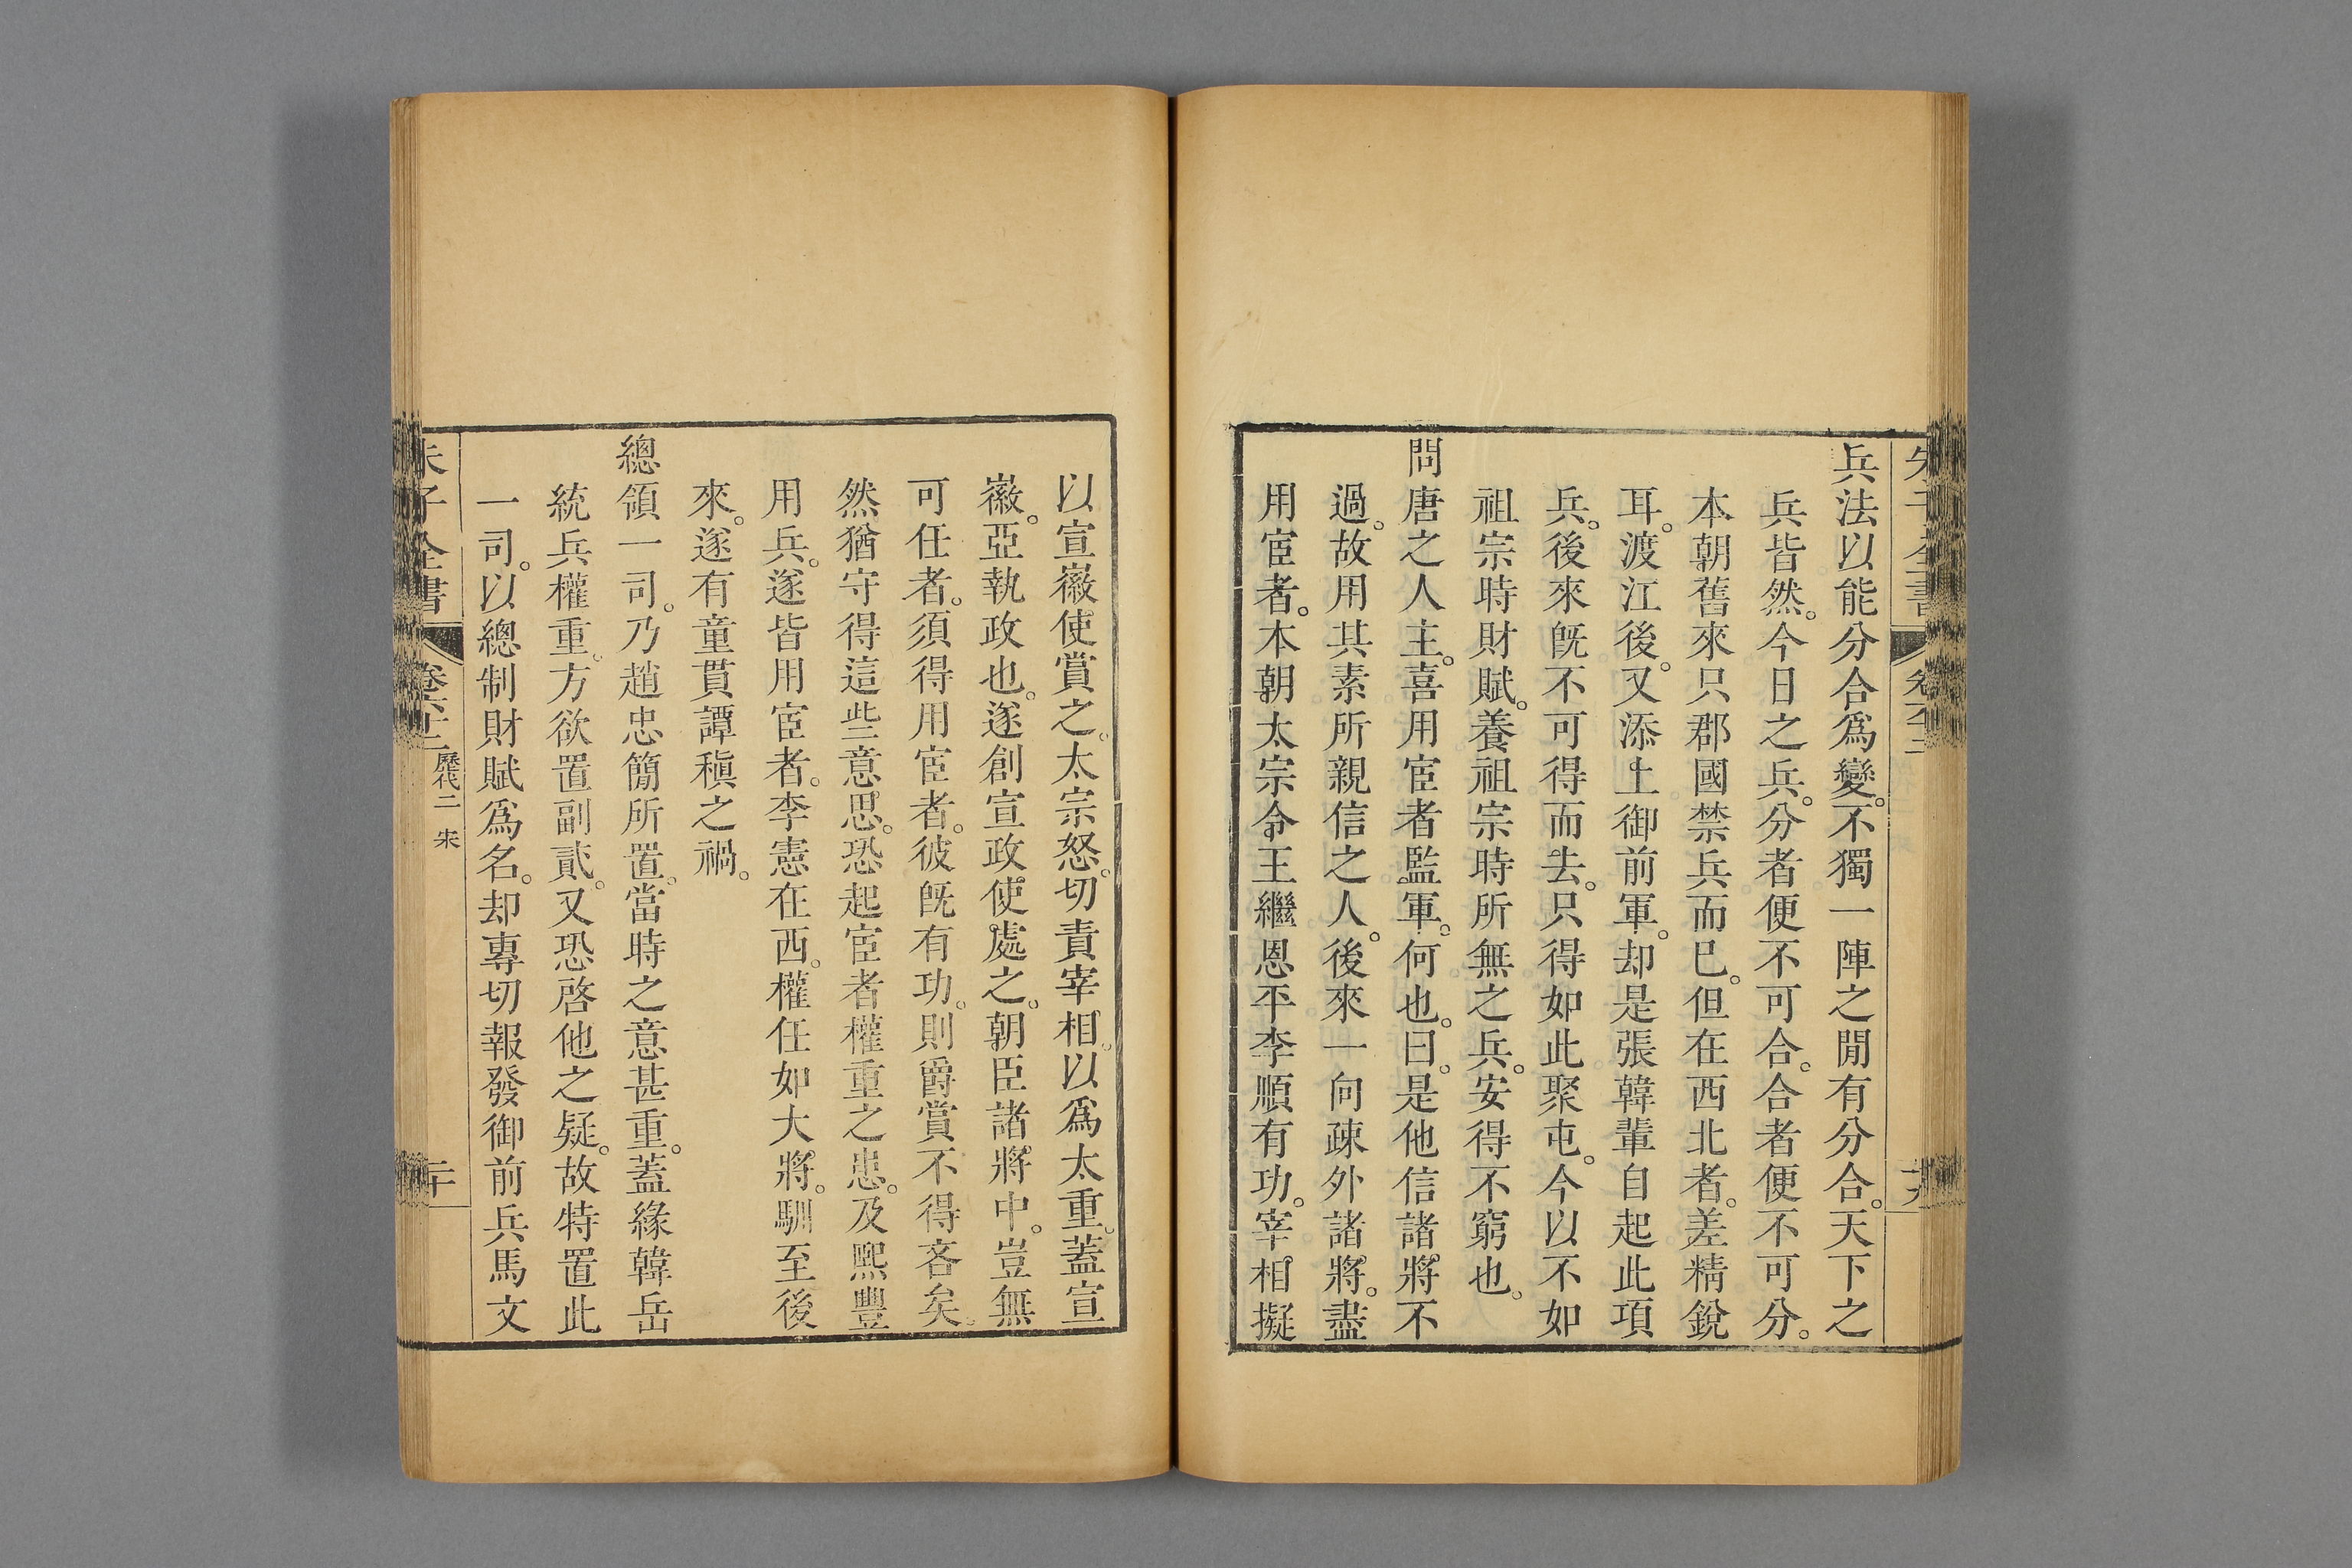 兵法以能分合爲變。不獨一陣之閒有分合。天下之
兵皆然。今日之兵。分者便不可合。合者便不可分。
本朝舊來只郡國禁兵而已。但在西北者。差精銳
耳。渡江後。又添上御前軍。却是張韓輩自起此項
兵。後來旣不可得而去。只得如此聚屯。今以不如
祖宗時財賦。養祖宗時所無之兵。安得不窮也。
問唐之人主。喜用宦者監軍。何也。曰。是他信諸將不
過。故用其素所親信之人。後來一向疎外諸將。盡
用宦者。本朝太宗令王繼恩平李順有功。宰相擬
以宣徽使賞之。太宗怒。切責宰相。以爲太重。蓋宣
徽。亞執政也。遂創宣政使處之。朝臣諸將中。豈無
可任者。須得用宦者。彼旣有功。則爵賞不得吝矣。
然猶守得這些意思。恐起宦者權重之患。及熙豐
用兵。遂皆用宦者。李憲在西。權任如大將。馴至後
來。遂有童貫譚稹之禍。
總領一司。乃趙忠簡所置。當時之意甚重。蓋緣韓岳
統兵權重。方欲置副貳。又恐啓他之疑。故特置此
一司。以總制財賦爲名。却專切報發御前兵馬文
朱子全書
歷代二 宋